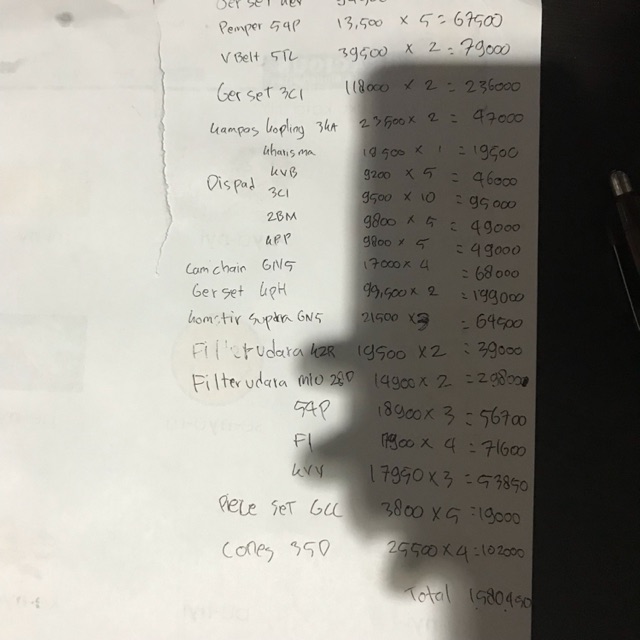 Ger set
Pemper 54P 13,500 × 5 = 67500
V Belt 5TL 39500 × 2 = 79000
Ger set 3C1 118000 × 2 = 236000
kampas kopling 3KA 23500 × 2 = 47000
kharisma 19500 × 1 = 19500
KVB 9200 × 5 = 46000
Dispad 3C1 9500 × 10 = 95000
2BM 9800 × 5 = 49000
9800 × 5 = 49000
Camchain GN5 17000 × 4 = 68000
Ger set KPH 99,500 × 2 = 199000
komstir supra GN5 21500 × 3 = 64500
Filter udara KZR 19500 × 2 = 39000
Filter udara mio 28D 14900 × 2 = 29800
54P 18900 × 3 = 56700
F1 17900 × 4 = 71600
KVY 17950 × 3 = 53850
SET GCC 3800 × 5 = 19000
Cones 35D 25500 × 4 = 102000
Total 1,580,450